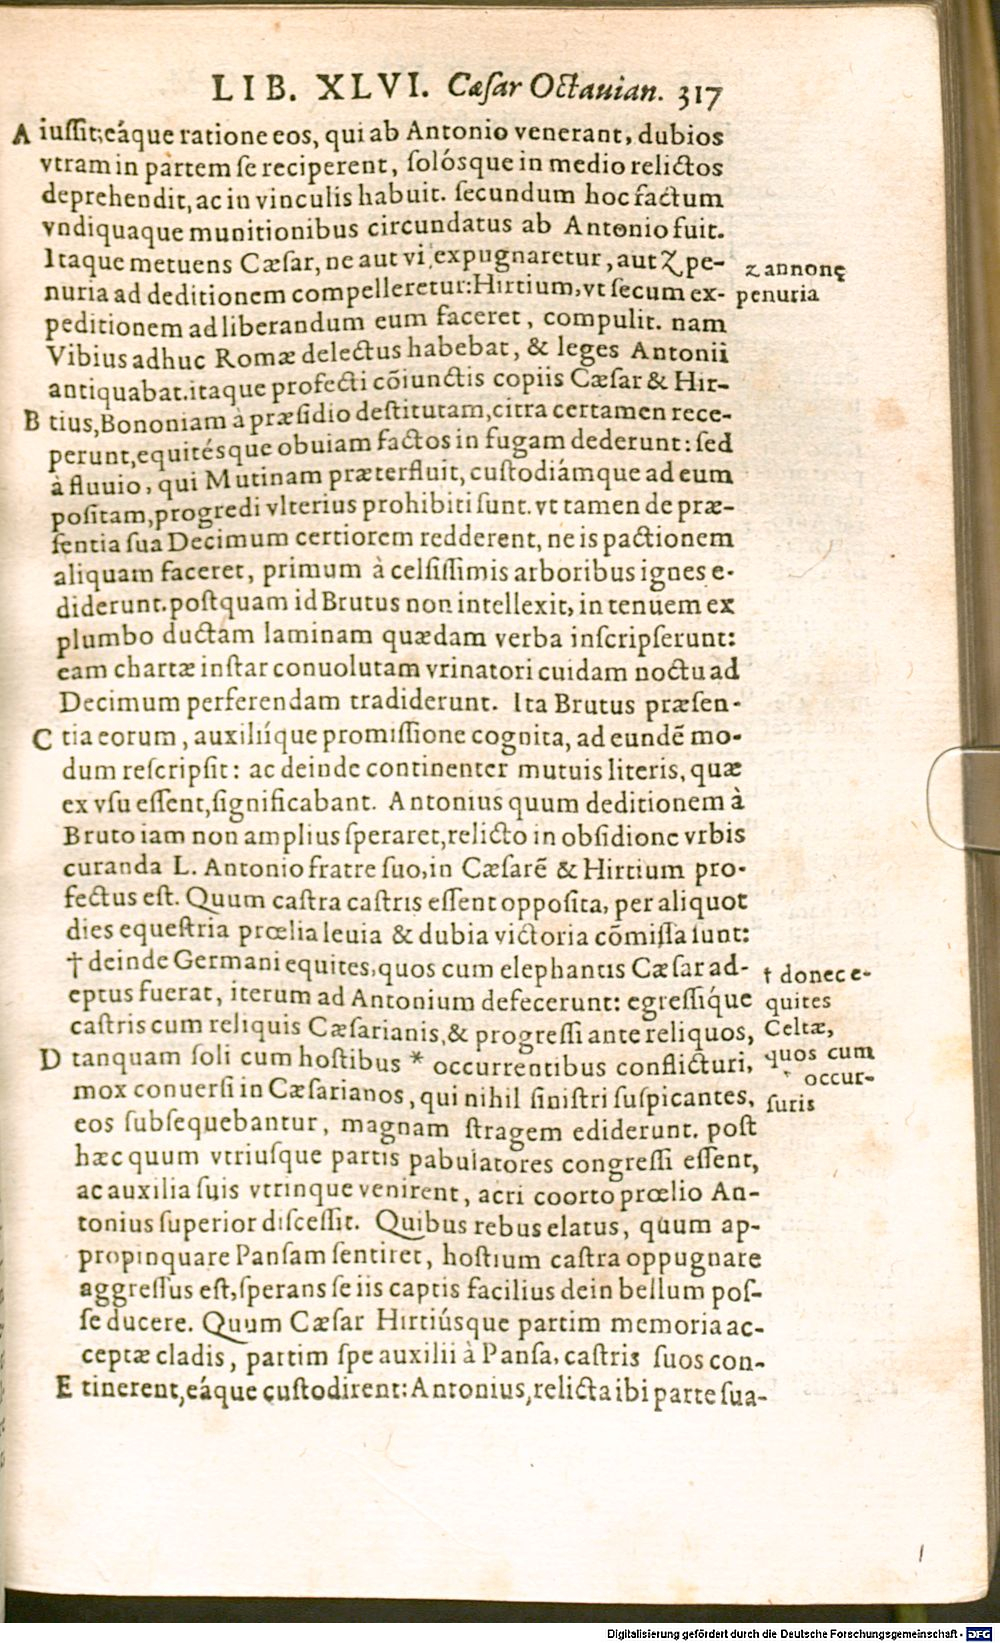 LIB. XLVI. Cæſar Octauian. 317
A iuſſit; eáque ratione eos, qui ab Antonio venerant, dubios
vtram in partem ſe reciperent, ſolósque in medio relictos
deprehendit, ac in vinculis habuit. ſecundum hoc factum
vndiquaque munitionibus circundatus ab Antonio fuit.
Itaque metuens Cæſar, ne aut vi expugnaretur, aut ⁊ pe-
⁊ annonę
nuria ad deditionem compelleretur: Hirtium, vt ſecum ex-
penuria
peditionem ad liberandum eum faceret, compulit. nam
Vibius adhuc Romæ delectus habebat, & leges Antonii
antiquabat. itaque profecti cōiunctis copiis Cæſar & Hir-
B tius, Bononiam à præſidio deſtitutam, citra certamen rece-
perunt, equitésque obuiam factos in fugam dederunt: ſed
à fluuio, qui Mutinam præterfluit, cuſtodiámque ad eum
poſitam, progredi vlterius prohibiti ſunt. vt tamen de præ-
ſentia ſua Decimum certiorem redderent, ne is pactionem
aliquam faceret, primum à celſiſſimis arboribus ignes e-
diderunt. poſtquam id Brutus non intellexit, in tenuem ex
plumbo ductam laminam quædam verba inſcripſerunt:
eam chartæ inſtar conuolutam vrinatori cuidam noctu ad
Decimum perferendam tradiderunt. Ita Brutus præſen-
C tia eorum, auxiliíque promiſſione cognita, ad eundē mo-
dum reſcripſit: ac deinde continenter mutuis literis, quæ
ex vſu eſſent, ſignificabant. Antonius quum deditionem à
Bruto iam non amplius ſperaret, relicto in obſidione vrbis
curanda L. Antonio fratre ſuo, in Cæſarē & Hirtium pro-
fectus eſt. Quum caſtra caſtris eſſent oppoſita, per aliquot
dies equeſtria prœlia leuia & dubia victoria cōmiſſa ſunt:
† deinde Germani equites, quos cum elephantis Cæſar ad-
† donec e-
eptus fuerat, iterum ad Antonium defecerunt: egreſſíque
quites
caſtris cum reliquis Cæſarianis, & progreſſi ante reliquos,
Celtæ,
D tanquam ſoli cum hoſtibus * occurrentibus conflicturi,
quos cum
* occur-
mox conuerſi in Cæſarianos, qui nihil ſiniſtri ſuſpicantes,
ſuris
eos ſubſequebantur, magnam ſtragem ediderunt. poſt
hæc quum vtriuſque partis pabulatores congreſſi eſſent,
ac auxilia ſuis vtrinque venirent, acri coorto prœlio An-
tonius ſuperior diſceſſit. Quibus rebus elatus, quum ap-
propinquare Panſam ſentiret, hoſtium caſtra oppugnare
aggreſſus eſt, ſperans ſe iis captis facilius dein bellum poſ-
ſe ducere. Quum Cæſar Hirtiúsque partim memoria ac-
ceptæ cladis, partim ſpe auxilii à Panſa, caſtris ſuos con-
E tinerent, eáque cuſtodirent: Antonius, relicta ibi parte ſua-
Digitalisierung gefördert durch die Deutsche Forschungsgemeinschaft - DFG